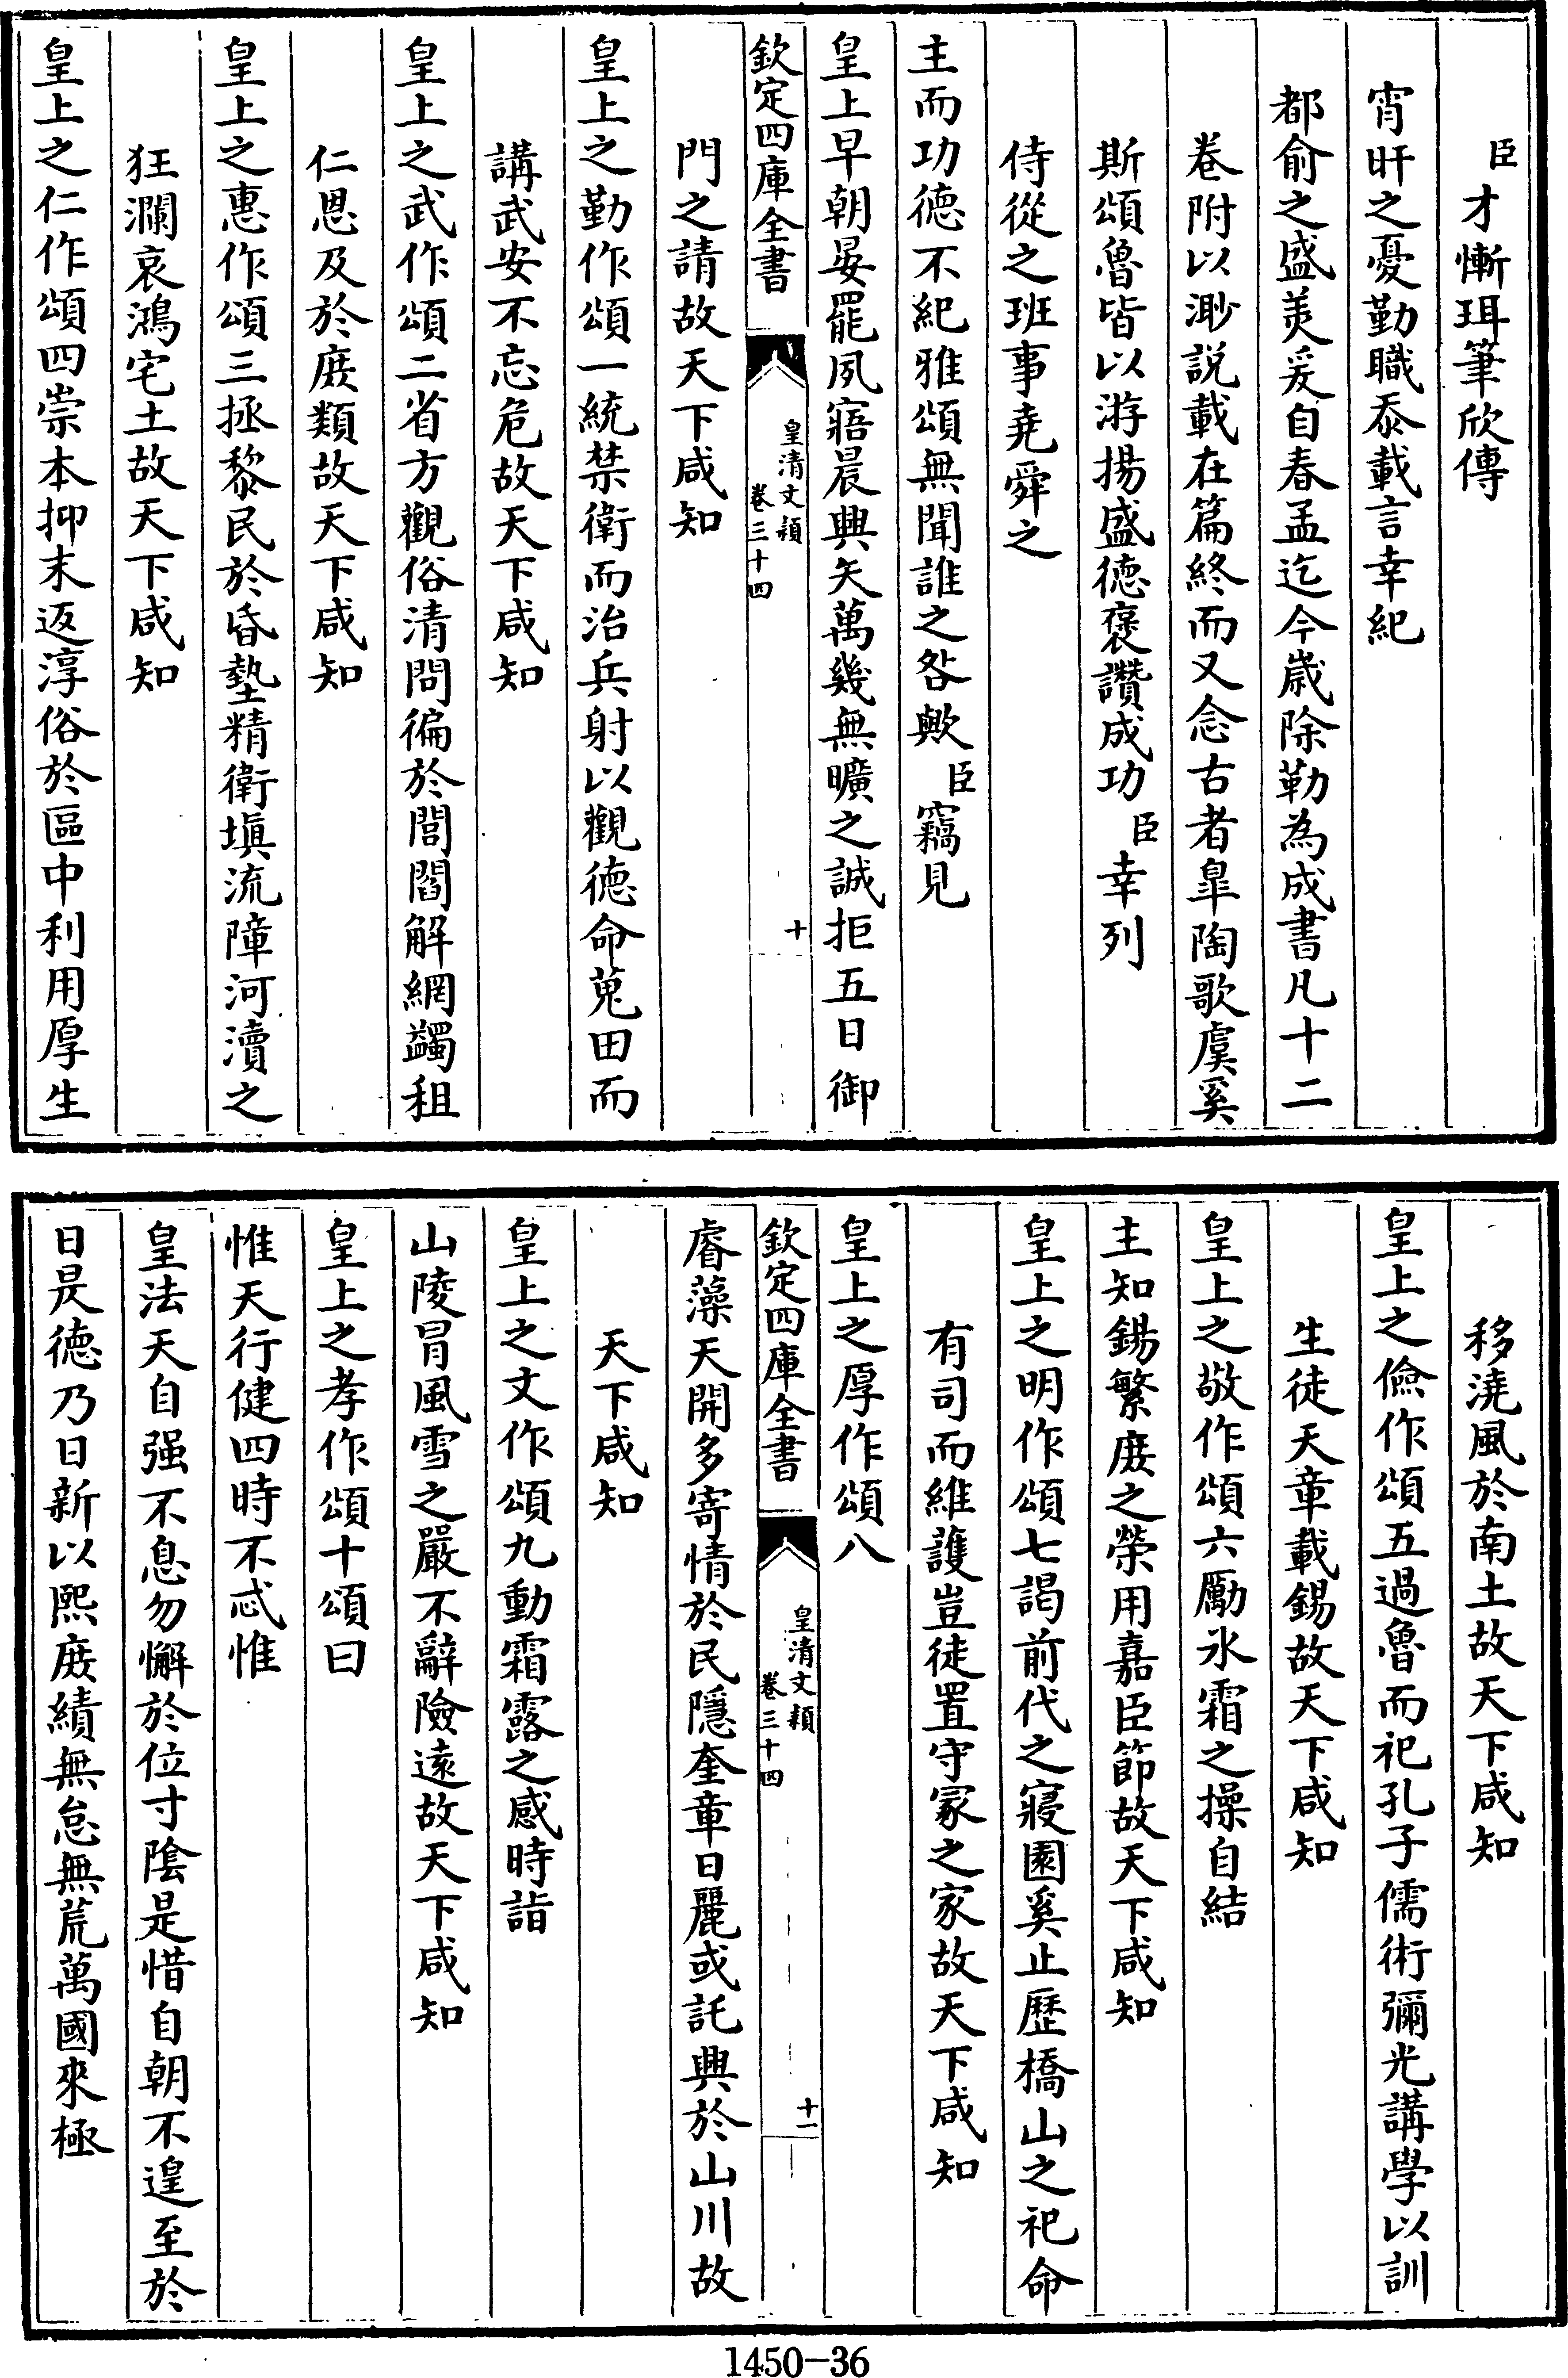 臣才慚珥筆欣傳
宵旰之憂勤職忝載言幸紀
都俞之盛美爰自春孟迄今歲除勒為成書凡十二
卷附以渺説載在篇終而又念古者臯陶歌虞奚
斯頌魯皆以游揚盛德褒讚成功臣幸列
侍從之班事堯舜之
主而功德不紀雅頌無聞誰之咎歟臣竊見
皇上早朝晏罷夙寤晨興矢萬幾無曠之誠拒五日御
欽定四庫全書
皇清文穎
卷三十四
十
門之請故天下咸知
皇上之勤作頌一統禁衛而治兵射以觀德命蒐田而
講武安不忘危故天下咸知
皇上之武作頌二省方觀俗清問徧於閭閻解網蠲租
仁恩及於庶類故天下咸知
皇上之惠作頌三拯黎民於昏墊精衛塡流障河瀆之
狂瀾哀鴻宅土故天下咸知
皇上之仁作頌四崇本抑末返淳俗於區中利用厚生
移澆風於南土故天下咸知
皇上之儉作頌五過魯而祀孔子儒術彌光講學以訓
生徒天章載錫故天下咸知
皇上之敬作頌六勵氷霜之操自結
主知錫繁庶之榮用嘉臣節故天下咸知
皇上之明作頌七謁前代之寢園奚止歷橋山之祀命
有司而維護豈徒置守冢之家故天下咸知
皇上之厚作頌八
欽定四庫全書
皇清文穎
卷三十四
十一
睿藻天開多寄情於民隱奎章日麗或託興於山川故
天下咸知
皇上之文作頌九動霜露之感時詣
山陵冒風雪之嚴不辭險遠故天下咸知
皇上之孝作頌十頌曰
惟天行健四時不忒惟
皇法天自强不息勿懈於位寸陰是惜自朝不遑至於
日昃德乃日新以熙庶績無怠無荒萬國來極
1450-36